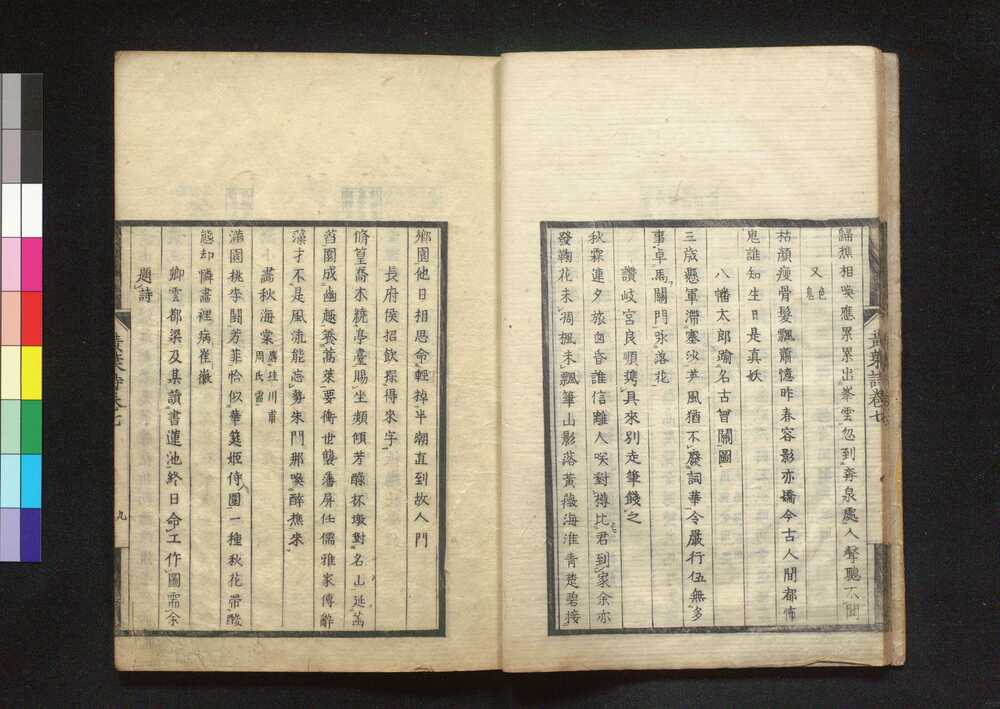 歸樵相喚應累累出峯雲忽到奔泉處人聲聽不聞
又 色鬼
枯顏瘦骨髮飄蕭憶昨春容影亦嬌今古人間都怖
鬼誰知生日是真妖
八幡太郎過名古曾關圖
三歲懸軍滯塞沙笋風猶不廢詞華令嚴行伍無多
事卓馬關門詠落花
讚岐宮良順携具來別走筆餞之
秋霖連夕旅齒昏誰信離人咲對樽比君到家余亦
發鞠花未凋楓未飄筆山影落黃薇海淮青楚碧接
鄉園他日相思命輕掉半潮直到故人門
長府侯招飲探得來字
脩篁喬木繞亭臺賜坐頻傾芳醁杯墩對名山延萬
舊園成幽趣養蒿萊要衝世襲藩屏任儒雅家傳辭
藻才不是風流能忘勢朱門那喚醉樵來
畫秋海棠 應桂川甫周氏需
滿園桃李鬪芳菲恰似華筵姬侍圍一種秋花帶酸
態却憐畫裡病崔徽
鄉雲都梁及某讀書蓮池終日命工作圖需余
題詩
黃葉詩卷七
九